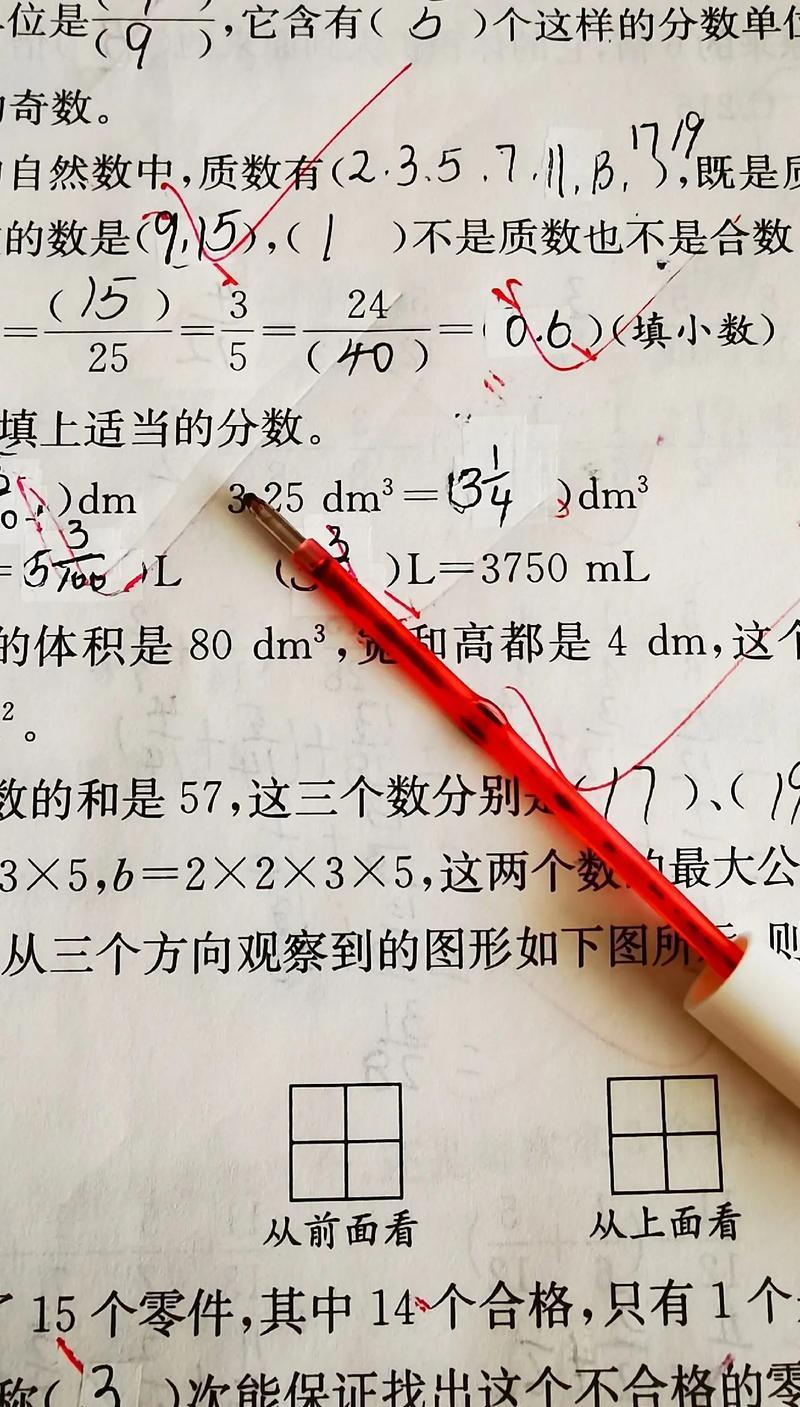 位是 ( ) / (9) ,它含有( 5 )个这样的分数单位
奇数。
自然数中,质数有(2.3.5.7.11.13.17 19),既是质
的数是(9.15),( 1 )不是质数也不是合数
= (15)/25 = 3/5 = 24/(40) = (0.6)(填小数)
填上适当的分数。
)dm 3.25 dm³=(3 1/4 )dm³
=5 3/100 )L ( 3 )L=3750 mL
的体积是 80 dm³,宽和高都是 4 dm,这个
²。
数的和是 57,这三个数分别是(17)、(19
3×5,b=2×2×3×5,这两个数的最大公
从三个方向观察到的图形如下图所示,则
从前面看 从上面看
了 15 个零件,其中 14 个合格,只有 1 个
称( 3 )次能保证找出这个不合格的零